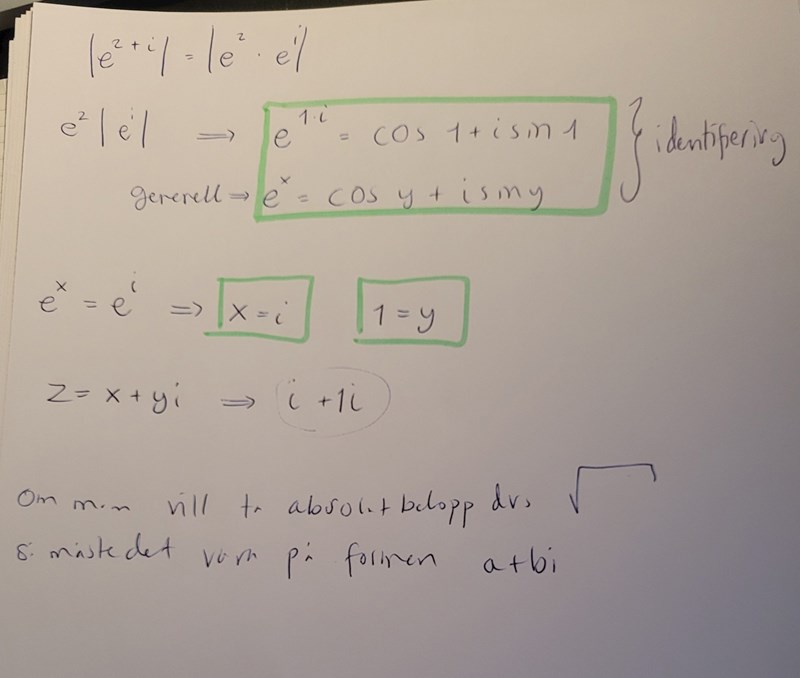 |e^{2+i}| = |e^2 · e^i|
e^2 |e^i| ⇒ e^{1·i} = cos 1 + i sin 1 } identifiering
generell ⇒ e^x = cos y + i sin y
e^x = e^i ⇒ x = i 1 = y
z = x + yi ⇒ i + 1i
Om man vill ta absolutbelopp dvs √
så måste det vara på formen a+bi